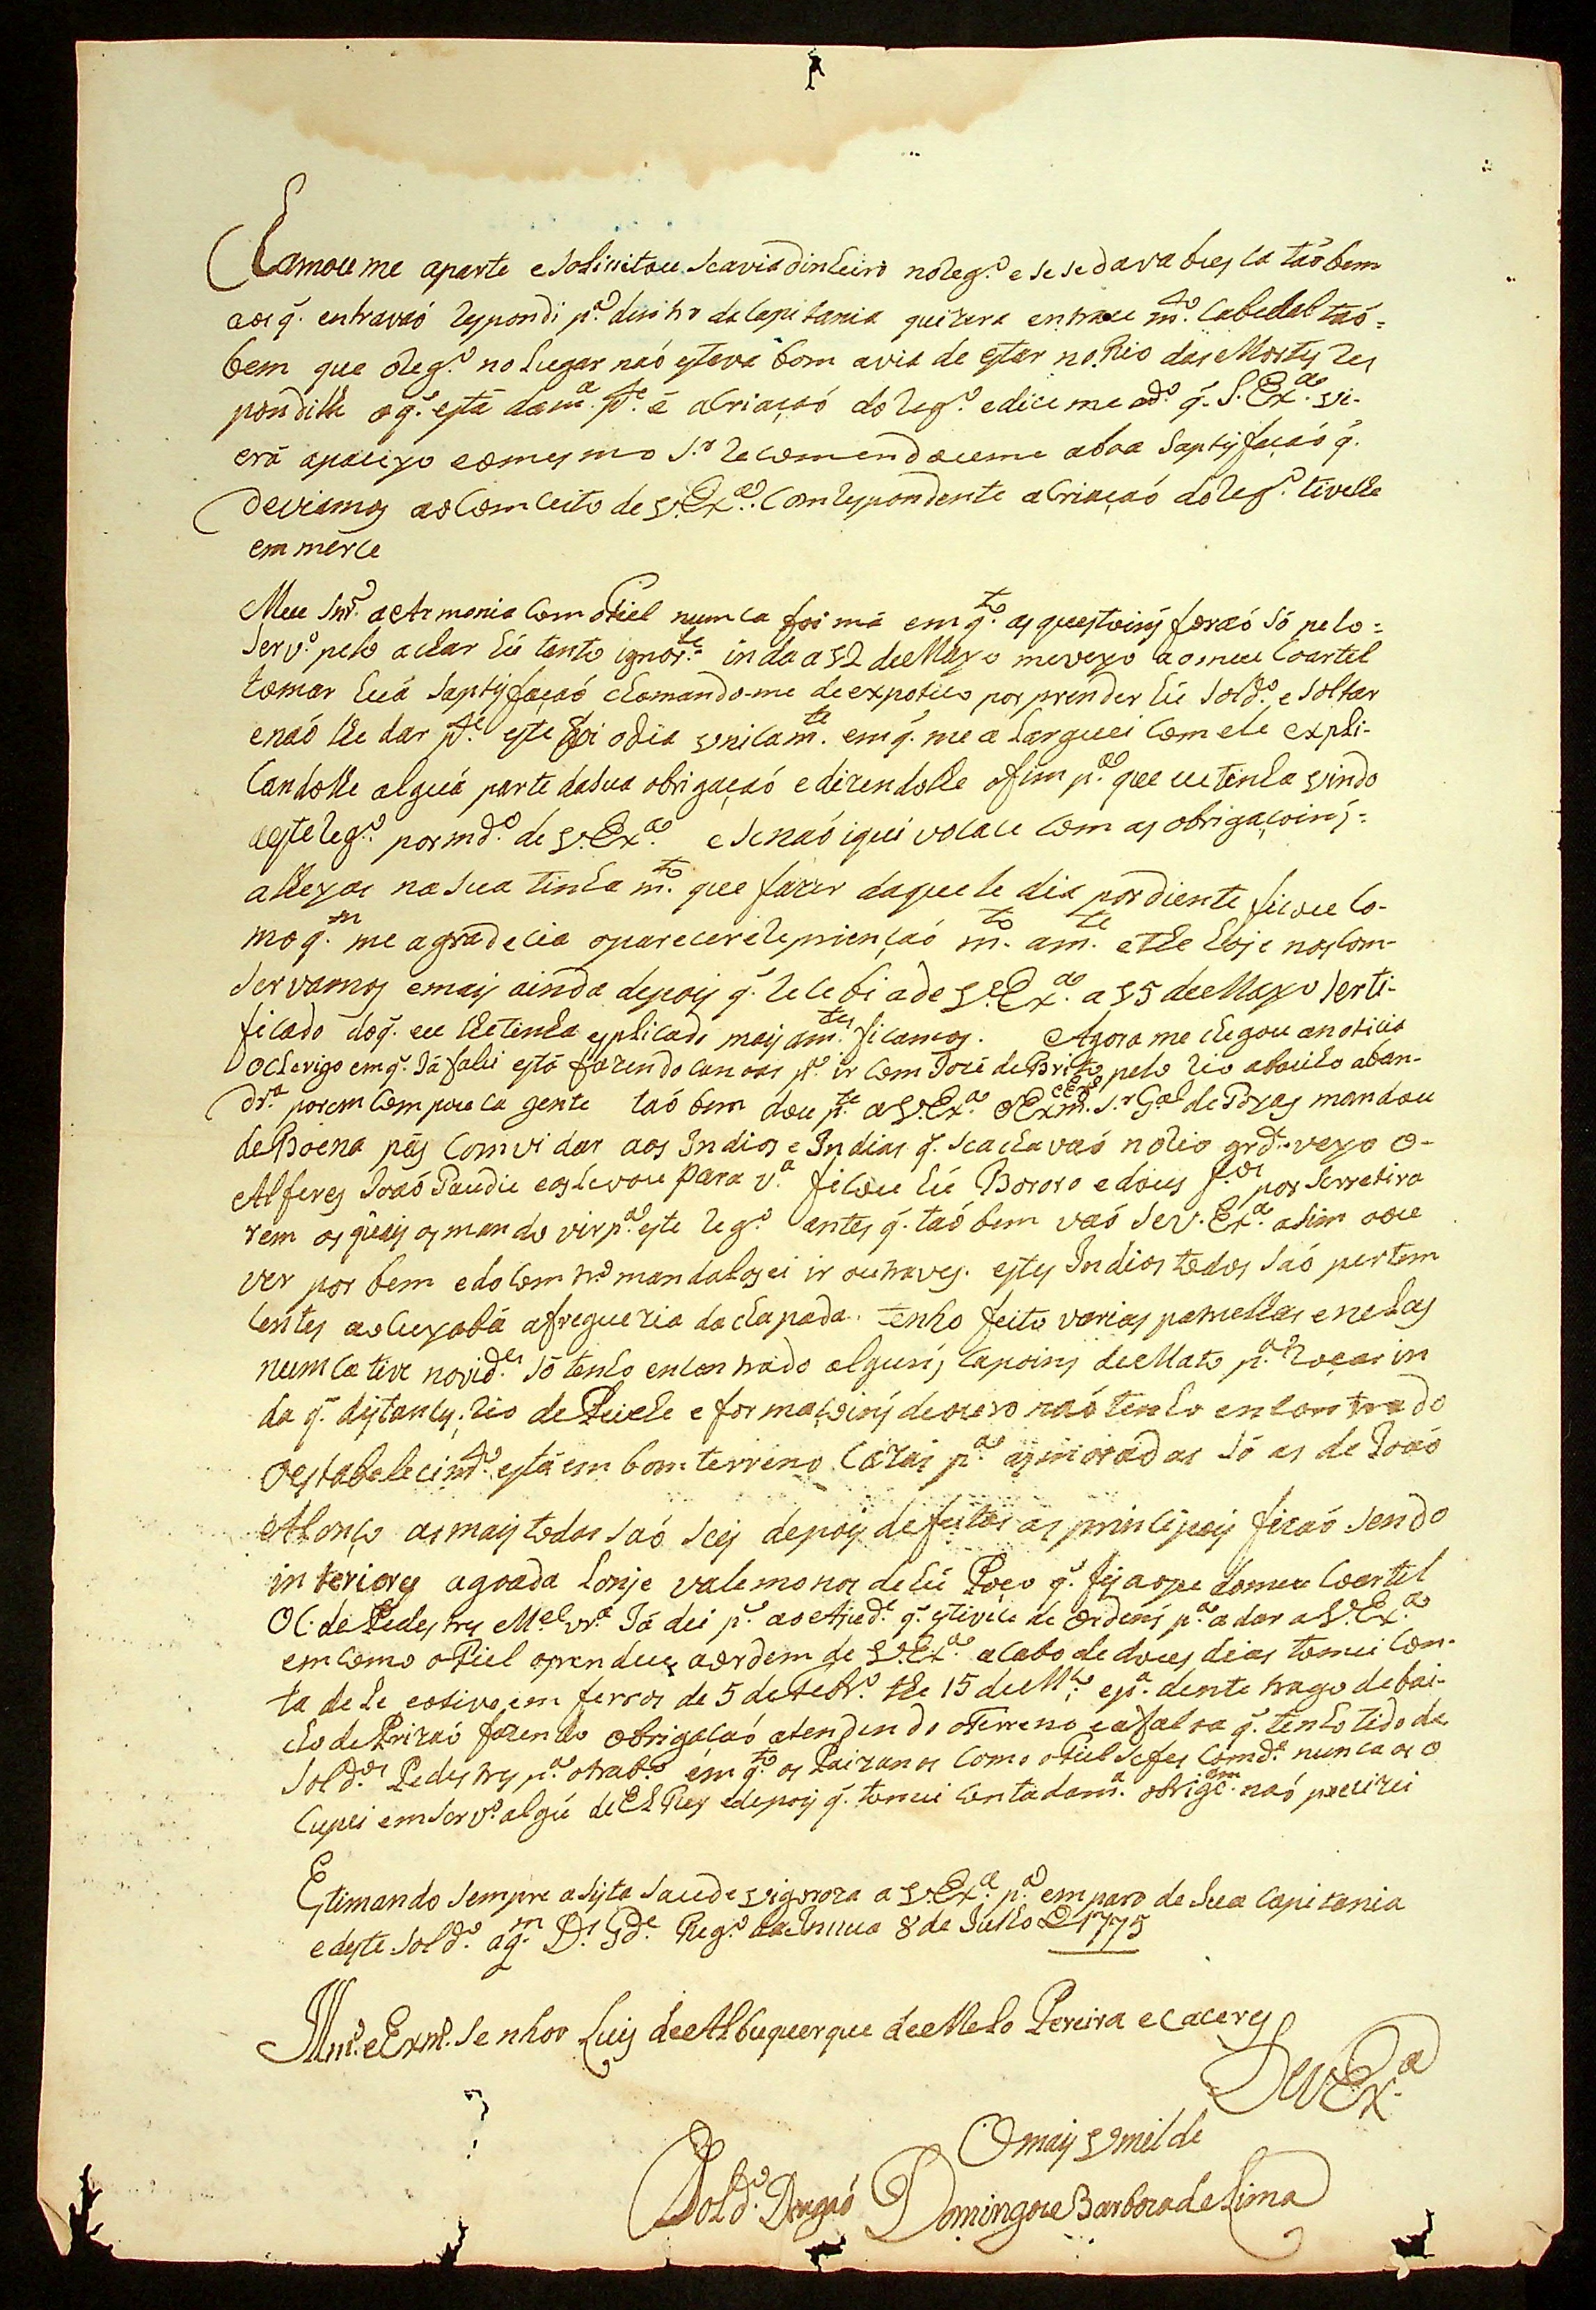 Xamou me aparte e Solisitou se avia dinheiro no Reg.º e se se dava busca taõbem
aos q̃. entravaó respondi p.ª dentro da Capitania quizera entrace m.to Cabedal taó=
bem que o Reg.º no Lugar naó estava bom avia de estar no Rio das Mortes res
pondilhe a q̃. está da m.ª p.te é a Criaçaó do Reg.º e dice me o d.º q̃. S. Ex.ª vi-
era apacizo eomesmo S.r recomendoume aboa Saptisfaçaó q̃.
Deviamos ao Comceito de V. Ex.ª Comrespondente a Criaçaó do Reg.º tivelle
em merce
Meu Snr.º a Armonia Com o Fiel numca foi má em q.to as questoins foraó Só pelo=
Serv.º pelo achar hú tanto ignor.te inda a 12 de Mayo meveyo ao meu Coartel
tomar huá Saptisfaçaó chamando-me de expotico por prender hú Sold.º e Soltar
e naó lhe dar p.te este foi o dia Unicam.te em q̃. me alarguei Com ele expli-
Candolle alguá parte dasua obrigaçaó e dizendolle o fim p.ª que eu tinha vindo
a este Reg.º por md.º de V. Ex.ª e Se naó iquivocace Com as obrigaçoins=
alleyas na Sua tinha m.to que fazer daquele dia pordiente ficou Co-
mo q.m me agradecia oparecer elepriençaó m.to am.te e the hoje nos Com-
Servamos e mais ainda depois q̃. recebi a de V. Ex.ª a 15 de Mayo Serti-
ficado doq̃. eu lhe tinha explicado mais am.tes ficamos. Agora me chegou anoticia
O Clerigo em q̃. Já falei está fazendo Canoas p.ª ir Com Jozé de Brito pelo rio abaicho aban-
dr.ª porem Com pouca gente taóbem dou p.te a V. Ex.ª o Exm.º S.r G.al de Goyas mandou
de Boena pás Comvidar aos Indios e Indias q̃. Se achavaó no Rio grd.e veyo o-
Alferes Joaó Paudie e os Levou para V.ª ficou hú Bororo e dous f.os por Serretira
rem os quais os mando vir p.ª este reg.º antes q̃. taóbem vaó Se V. Ex.ª asim oou
ver por bem e do Comtr.º mandalosei ir outraves. estes Indios todos Saó pertem
Centes ao Cuyabá afreguezia da Chapada. tenho feito varias patrullas e nelas
numca tive novid.es Só tenho encontrado alguns Capoins de Mato p.ª roças in
da q̃. distancis; rio de Peiche e formaçoins de ouro naó tenho encontrado
O establecim.to está em bom terreno Cazas p.ª as moradas Só as de Joaó
Afonço as mais todas Saó Seis depois defeitas as principais ficaó Sendo
interiores agoada Lonje valemonos de hú Poço q̃. fis ao pe domeu Coartel
O C. de Pedestres M.el vr.ª Já dei p.te ao Ajud.e q̃. estivece de ordens p.ª a dar a V. Ex.ª
em Como o Fiel oprendeu aordem de V. Ex.ª acabo de doces dias tomei Con-
ta dele e otive em ferros de 5 de Febr.º the 15 de M.ço; e p.ª diente trago debai-
cho de Prizaó fazendo obrigaçaó atendendo o Terreno e a falta q̃. tenho tido de
Sold.os Pedestres p.ª otrab.º em q.to os Paizanos Como o Fiel Sefes Comd.e nunca os o
Cupei em Serv.º algú de El Rey e depois q̃. tomei Conta dam.ª obrigç.am naó precizei
Estimando Sempre asista Saude vigoroza a V. Ex.ª p.ª emparo de Sua Capitania
e deste Sold.º a q.m D.s G.de Reg.º da Insua 8 de Julho de 1775
Illm.º e Exm.º Senhor Luis de Albuquerque de Melo Pereira e Caceres
De V. Ex.ª
O mais Umilde
Sold.º Dragaó Domingos Barboza de Lima